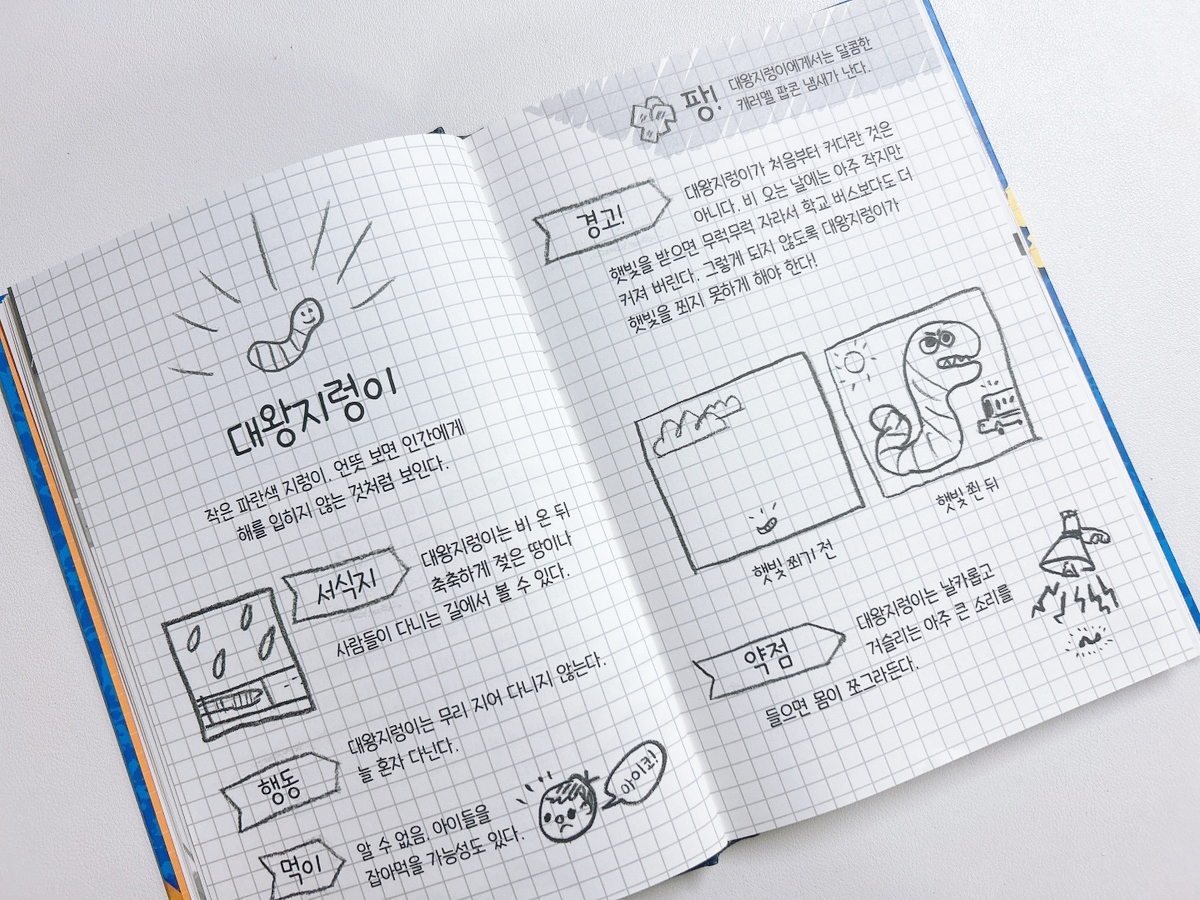 대왕지렁이
작은 파란색 지렁이. 언뜻 보면 인간에게
해를 입히지 않는 것처럼 보인다.
서식지
대왕지렁이는 비 온 뒤
축축하게 젖은 땅이나
사람들이 다니는 길에서 볼 수 있다.
행동
대왕지렁이는 무리 지어 다니지 않는다.
늘 혼자 다닌다.
먹이
알 수 없음. 아이들을
잡아먹을 가능성도 있다.
아이쿠!
팡!
대왕지렁이에게서는 달콤한
캐러멜 팝콘 냄새가 난다.
경고!
대왕지렁이가 처음부터 커다란 것은
아니다. 비 오는 날에는 아주 작지만
햇빛을 받으면 무럭무럭 자라서 학교 버스보다도 더
커져 버린다. 그렇게 되지 않도록 대왕지렁이가
햇빛을 쬐지 못하게 해야 한다!
햇빛 쬐기 전
햇빛 쬔 뒤
약점
대왕지렁이는 날카롭고
거슬리는 아주 큰 소리를
들으면 몸이 쪼그라든다.